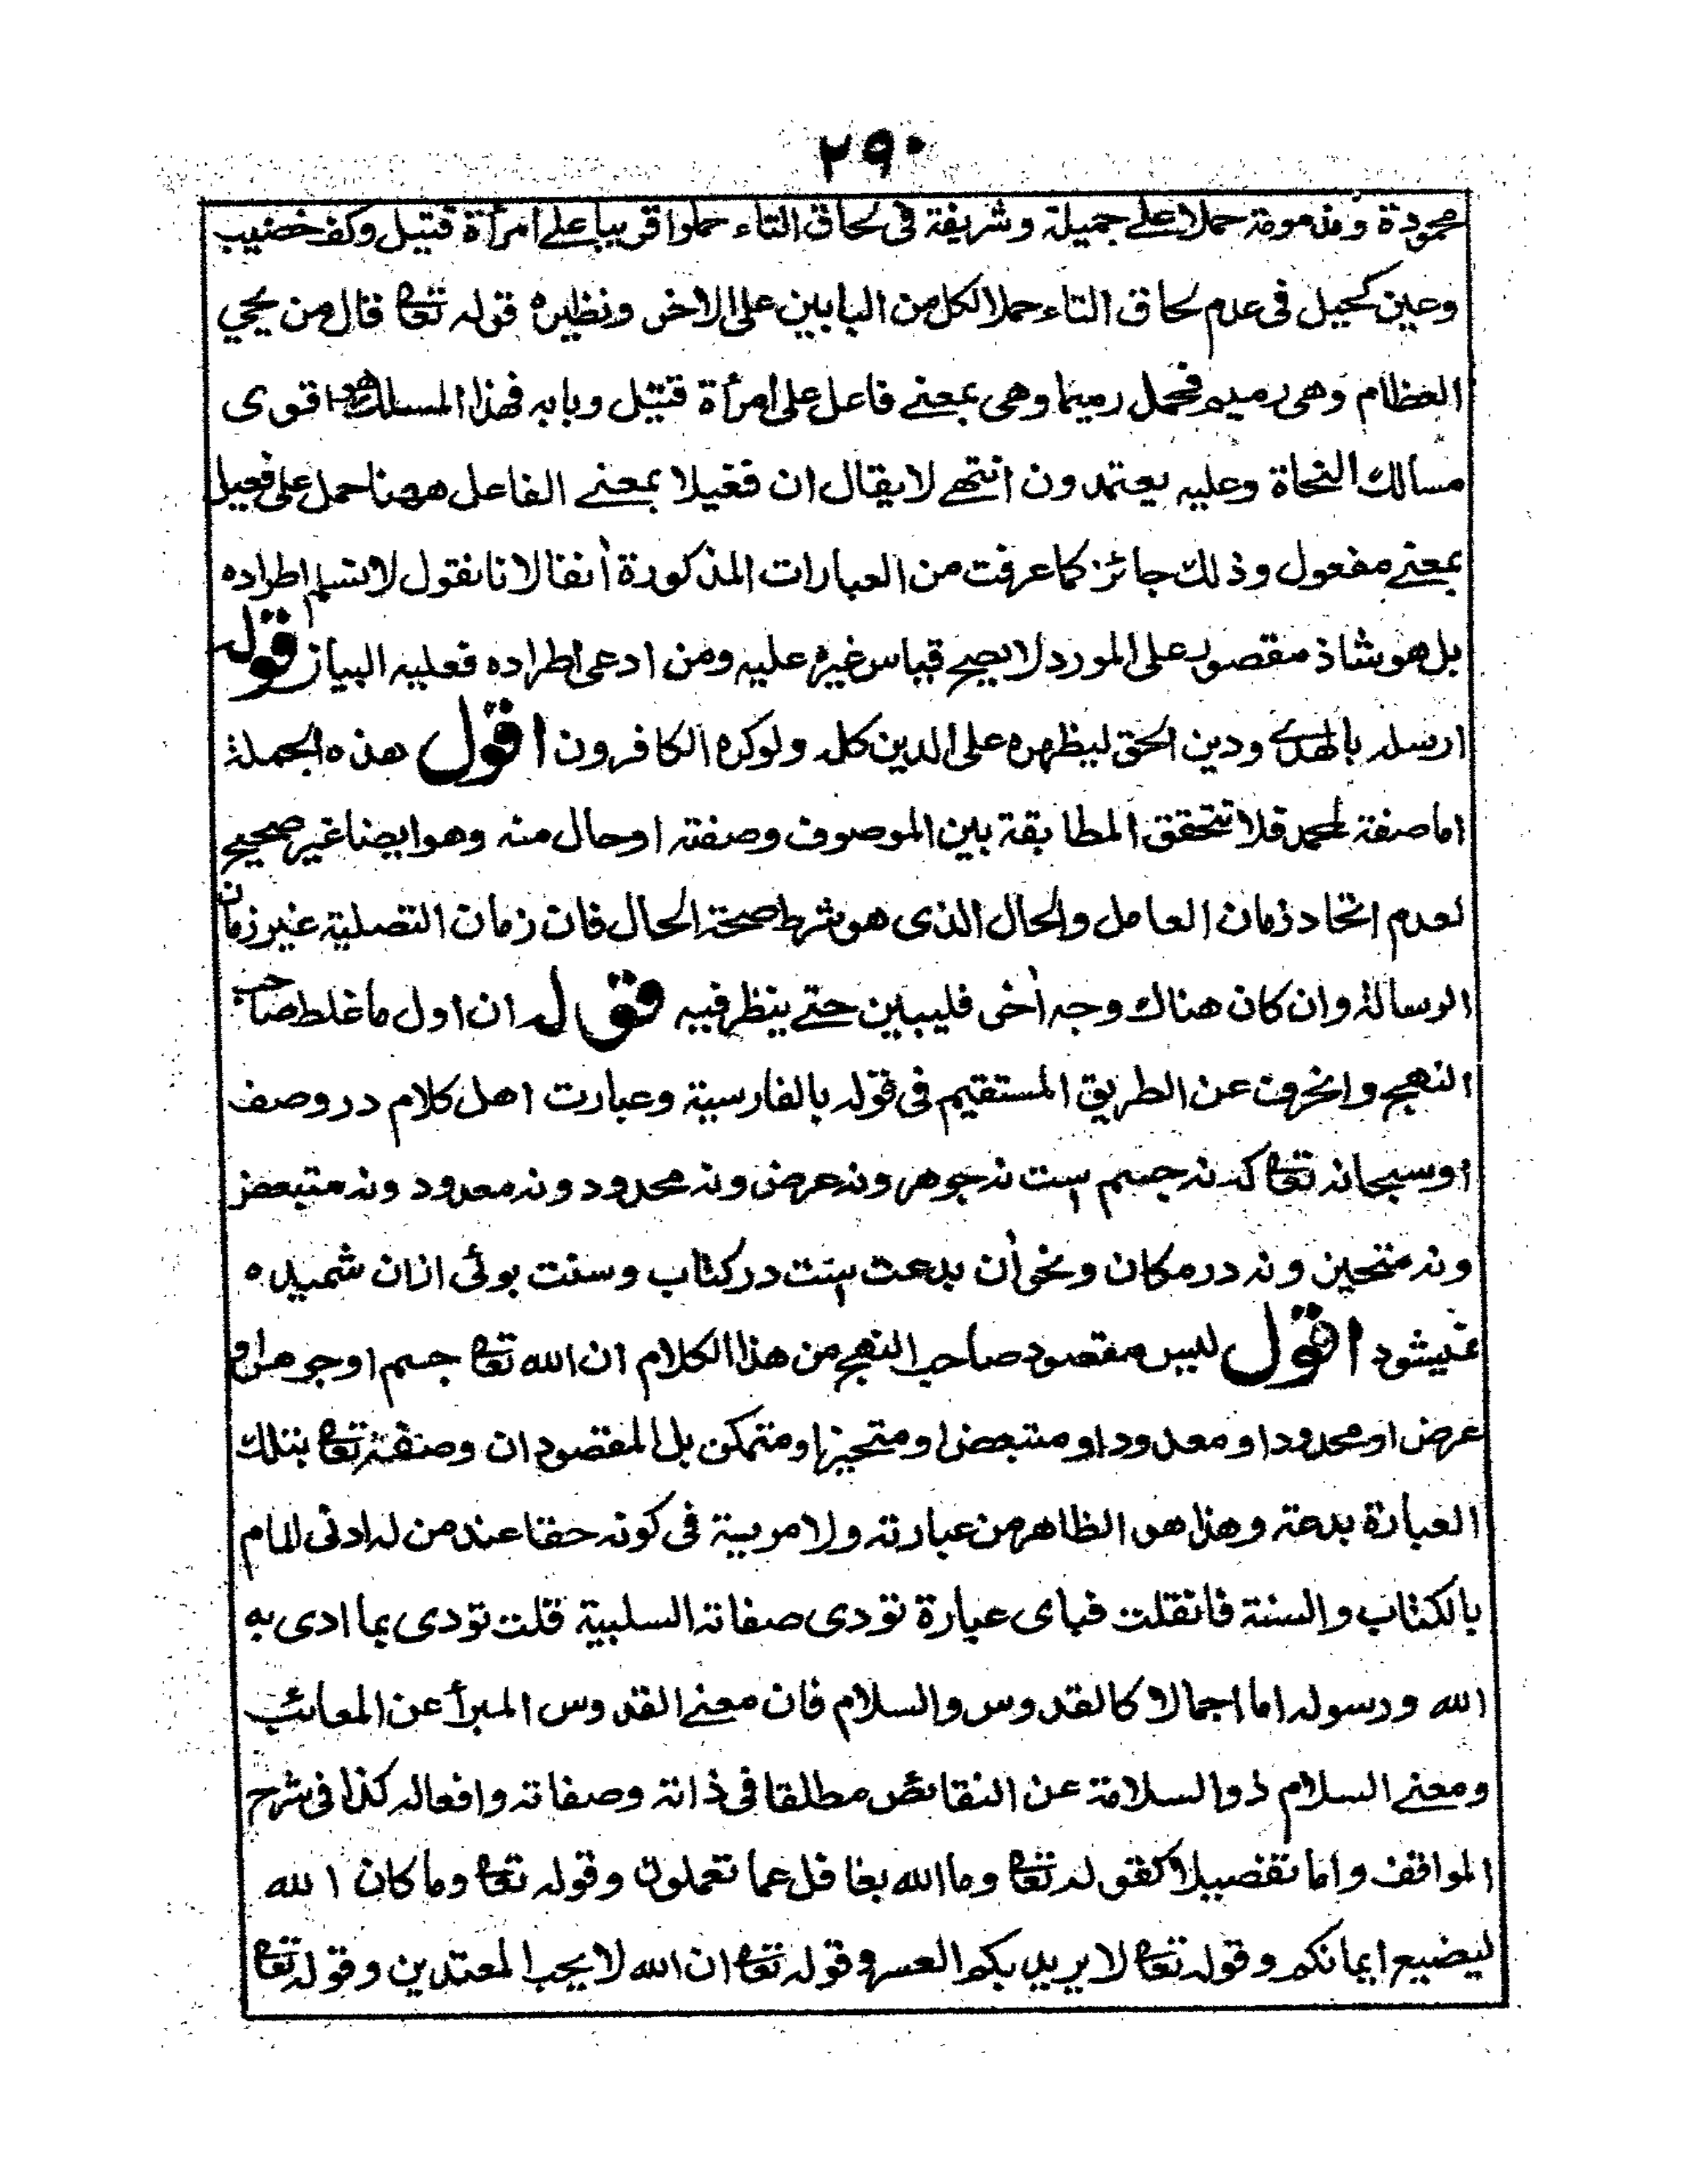 ٢٩٠
محمودة ومذمومة حملا على جميلة وشريفة فى لحاق التاء حملوا قريبا على امرأة قتيل وكف خضيب
وعين كحيل فى عدم لحاق التاء حملا لكل من البابين على الاخر ونظيره قوله تعالى قال من يحيي
العظام وهى رميم فحمل رميما وهى بمعنے فاعل على امرأة قتيل وبابه فهذا المسلك هو اقوى
مسالك النحاة وعليه يعتمدون انتهے لا يقال ان فعيلا بمعنے الفاعل ههنا حمل على فعيل
بمعنے مفعول وذلك جائز كما عرفت من العبارات المذكورة أنفا لانا نقول لا نسلم اطراده
بل هو شاذ مقصور على المورد لا يصح قياس غيره عليه ومن ادعى اطراده فعليه البيان قوله
ارسله بالهدے ودين الحق ليظهره على الدين كله ولوكره الكافرون اقول هذه الجملة
اما صفة لمحمد فلا تتحقق المطابقة بين الموصوف وصفته اوحال منه وهو ايضا غير صحيح
لعدم اتحاد زمان العامل والحال الذى هو شرط صحة الحال فان زمان التصلية غير زمان
الرسالة وان كان هناك وجه أخر فليبين حتے ينظر فيه قوله ان اول ما غلط صاحب
النهج وانحرف عن الطريق المستقيم فى قوله بالفارسية وعبارت اهل كلام در وصف
اوسبحانه تعالى كه نه جسم ست نه جوهر ونه عرض ونه محدود ونه معدود ونه متبعض
ونه متحيز ونه در مكان ونحو أن بدعت ست در كتاب وسنت بوئى ازان شميده
نميشود اقول ليس مقصود صاحب النهج من هذا الكلام ان الله تعالى جسم اوجوهر او
عرض اومحدود او معدود او متبعض اومتحيز اومتمكن بل المقصود ان وصفه تعالى بتلك
العبارة بدعة وهذا هو الظاهر من عبارته ولا مريبة فى كونه حقا عند من له ادنى المام
بالكتاب والسنة فان قلت فباى عبارة تودى صفاته السلبية قلت تودى بما ادى به
الله ورسوله اما اجمالا كالقدوس والسلام فان معنے القدوس المبرأ عن المعائب
ومعنے السلام ذوالسلامة عن النقائص مطلقا فى ذاته وصفاته وافعاله كذا فى شرح
المواقف واما تفصيلا كقوله تعالى وما الله بغافل عما تعملون وقوله تعالى وما كان الله
ليضيع ايمانكم وقوله تعالى لا يريد بكم العسر وقوله تعالى ان الله لا يحب المعتدين وقوله تعالى